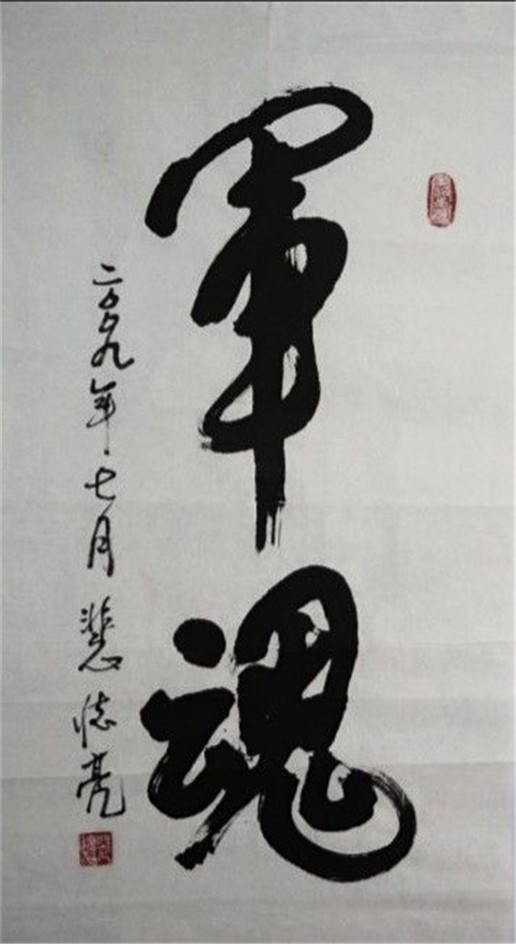 軍魂
二〇〇九年七月 裴懷亮